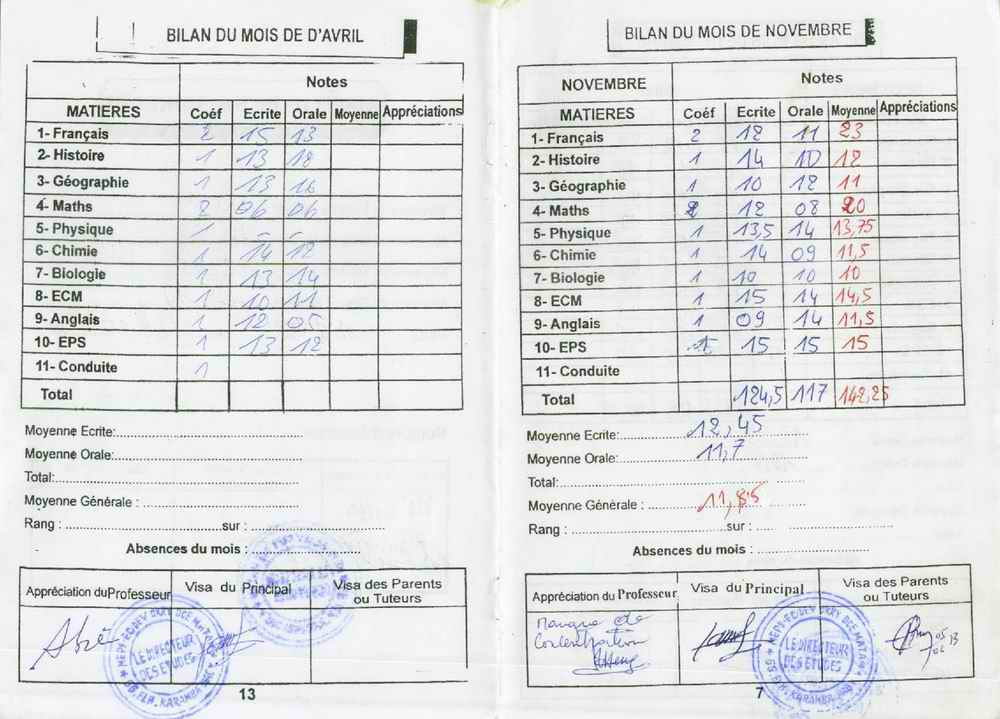 BILAN DU MOIS DE D'AVRIL
Notes
MATIERES Coéf Ecrite Orale Moyenne Appréciations
1- Français 2 15 13
2- Histoire 1 13 18
3- Géographie 1 13 16
4- Maths 2 06 06
5- Physique 1 - -
6- Chimie 1 14 12
7- Biologie 1 13 14
8- ECM 1 10 11
9- Anglais 1 12 05
10- EPS 1 13 12
11- Conduite 1
Total
Moyenne Ecrite:
Moyenne Orale:
Total:
Moyenne Générale :
Rang : sur :
Absences du mois :
Appréciation du Professeur Visa du Principal Visa des Parents ou Tuteurs
LE DIRECTEUR
DES ETUDES
13
BILAN DU MOIS DE NOVEMBRE
NOVEMBRE Notes
MATIERES Coéf Ecrite Orale Moyenne Appréciations
1- Français 2 12 11 23
2- Histoire 1 14 10 12
3- Géographie 1 10 12 11
4- Maths 2 12 08 20
5- Physique 1 13,5 14 13,75
6- Chimie 1 14 09 11,5
7- Biologie 1 10 10 10
8- ECM 1 15 14 14,5
9- Anglais 1 09 14 11,5
10- EPS 1 15 15 15
11- Conduite
Total 124,5 117 142,25
Moyenne Ecrite: 12,45
Moyenne Orale: 11,7
Total:
Moyenne Générale : 11,85
Rang : sur :
Absences du mois :
Appréciation du Professeur Visa du Principal Visa des Parents ou Tuteurs
Manque de
Concentration
LE DIRECTEUR
DES ETUDES
7